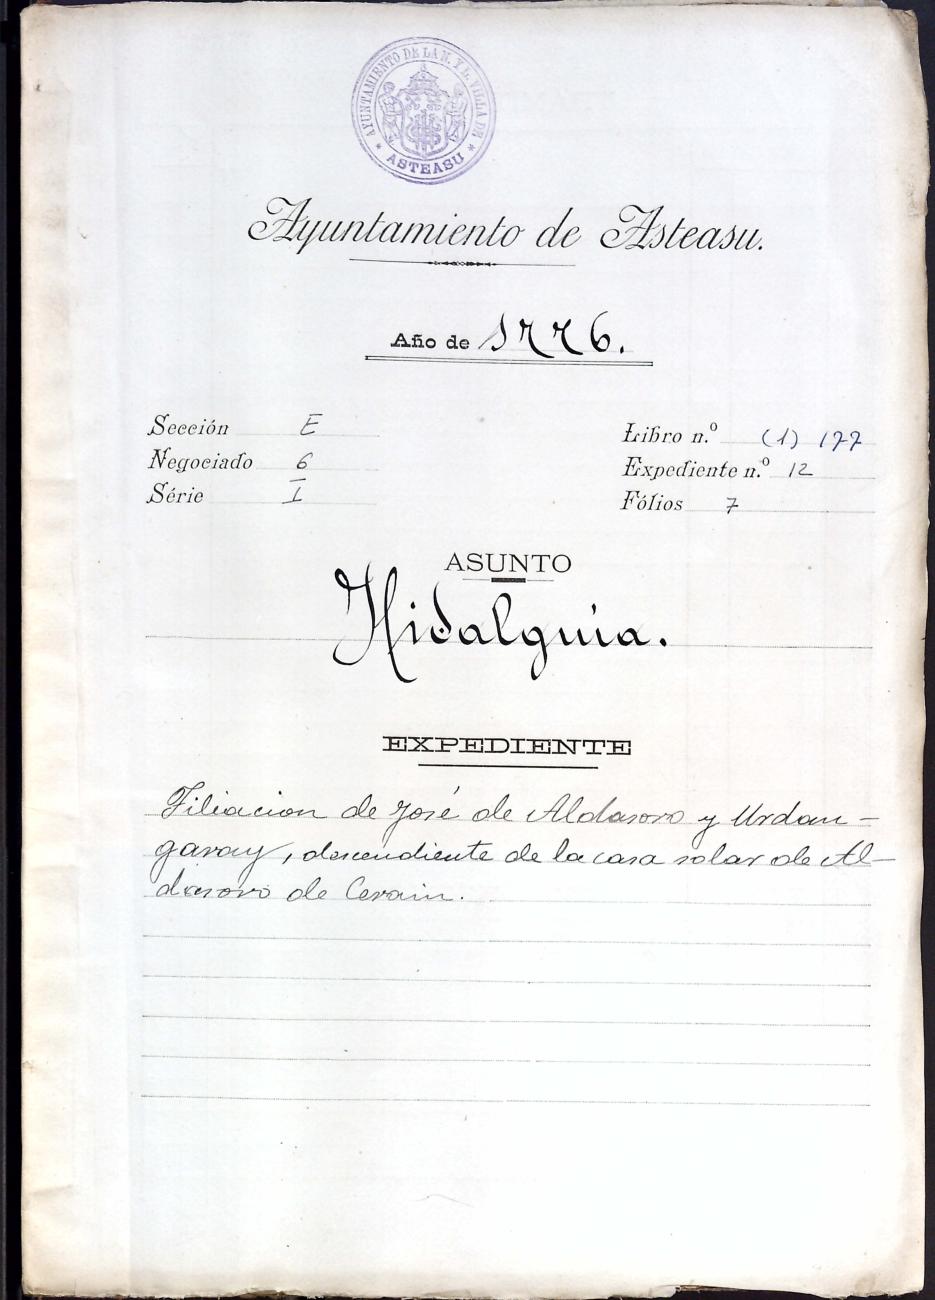 AYUNTAMIENTO DE LA N. Y L. VILLA DE
* ASTEASU *
Ayuntamiento de Asteasu.
Año de 1776.
Sección E
Negociado 6
Série I
Libro n.º (1) 177
Expediente n.º 12
Fólios 7
ASUNTO
Hidalguia.
EXPEDIENTE
Filiacion de José de Aldasoro y Urdan-
garay, descendiente de la casa solar de Al-
dasoro de Cerain.